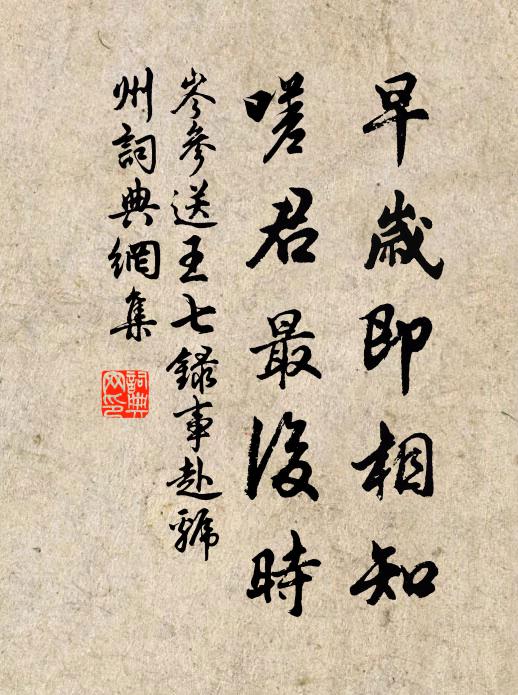 早歲即相知
嗟君最後時
岑參送王七錄事赴虢
州詞典網集
詞典
网印